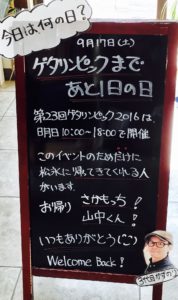 今日は何の日？
9月17日(土)
ゲタリンピックまで
あと1日の日
第23回ゲタリンピック2016は
明日10:00~18:00で開催
このイベントのためだけに
松永に帰ってきてくれる人
がいます。
お帰り さかもっち!!
山中くん!!
いつもありがとう(^^)
Welcome Back!